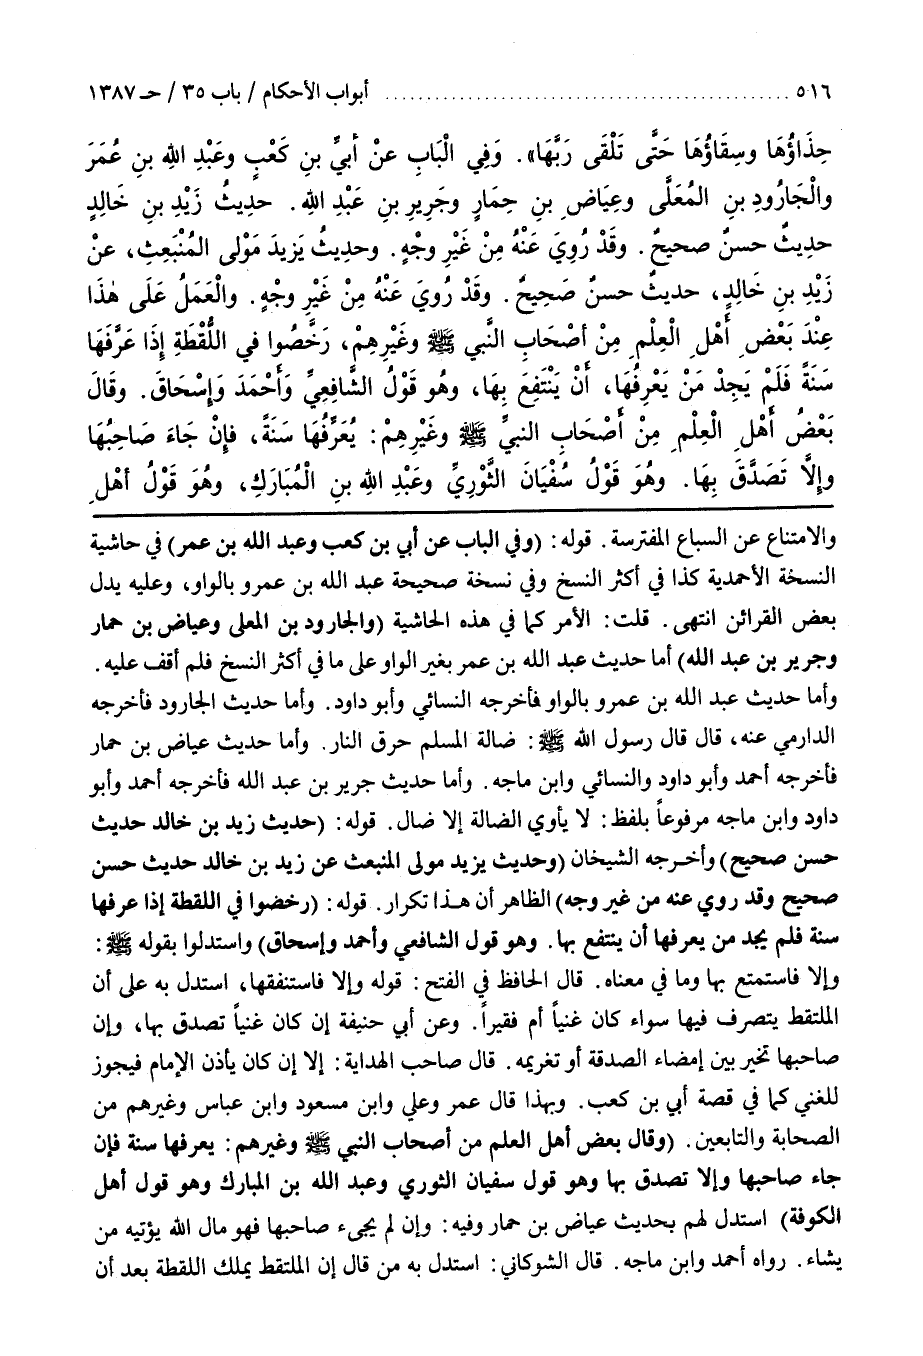 ٥١٦ ........................................ أبواب الأحكام / باب ٣٥ / حـ ١٣٨٧
حِذَاؤُهَا وسِقَاؤُهَا حَتَّى تَلْقَى رَبَّهَا». وَفِي الْبَابِ عَنْ أُبيِّ بنِ كَعْبٍ وعَبْدِ اللهِ بنِ عُمَرَ
والْجَارُودِ بنِ المُعَلَّى وعِيَاضِ بنِ حِمَارٍ وجَرِيرِ بنِ عَبْدِ اللهِ. حديثُ زَيْدِ بنِ خَالِدٍ
حديثٌ حسنٌ صحيحٌ. وقَدْ رُوِيَ عَنْهُ مِنْ غَيْرِ وجْهٍ. وحديثُ يَزِيدَ مَوْلى المُنْبَعِثِ، عَنْ
زَيْدِ بنِ خَالِدٍ، حديثٌ حسنٌ صَحِيحٌ. وقَدْ رُويَ عَنْهُ مِنْ غَيْرِ وجْهٍ. والْعَمَلُ عَلَى هٰذَا
عِنْدَ بَعْضِ أَهْلِ الْعِلْمِ مِنْ أصْحَابِ النَّبي ﷺ وغَيْرِهِمْ، رَخَّصُوا في اللُّقَطَةِ إذَا عَرَّفَهَا
سَنَةً فَلَمْ يَجِدْ مَنْ يَعْرِفُهَا، أَنْ يَنْتَفِعَ بِهَا، وهُو قَوْلُ الشَّافِعِيِّ وَأَحْمَدَ وَإسْحَاقَ. وقَالَ
بَعْضُ أَهْلِ الْعِلْمِ مِنْ أَصْحَابِ النبيِّ ﷺ وغَيْرِهِمْ: يُعَرِّفُهَا سَنَةً، فَإنْ جَاءَ صَاحِبُهَا
وإلَّا تَصَدَّقَ بِهَا. وهُوَ قَوْلُ سُفْيَانَ الثَّوْرِيِّ وعَبْدِ اللهِ بنِ الْمُبَارَكِ، وهُوَ قَوْلُ أهْلِ
والامتناع عن السباع المفترسة. قوله: (وفي الباب عن أبي بن كعب وعبد الله بن عمر) في حاشية
النسخة الأحمدية كذا في أكثر النسخ وفي نسخة صحيحة عبد الله بن عمرو بالواو، وعليه يدل
بعض القرائن انتهى. قلت: الأمر كما في هذه الحاشية (والجارود بن المعلى وعياض بن حمار
وجرير بن عبد الله) أما حديث عبد الله بن عمر بغير الواو على ما في أكثر النسخ فلم أقف عليه.
وأما حديث عبد الله بن عمرو بالواو فأخرجه النسائي وأبو داود. وأما حديث الجارود فأخرجه
الدارمي عنه، قال قال رسول الله ﷺ: ضالة المسلم حرق النار. وأما حديث عياض بن حمار
فأخرجه أحمد وأبو داود والنسائي وابن ماجه. وأما حديث جرير بن عبد الله فأخرجه أحمد وأبو
داود وابن ماجه مرفوعاً بلفظ: لا يأوي الضالة إلا ضال. قوله: (حديث زيد بن خالد حديث
حسن صحيح) وأخرجه الشيخان (وحديث يزيد مولى المنبعث عن زيد بن خالد حديث حسن
صحيح وقد روي عنه من غير وجه) الظاهر أن هذا تكرار. قوله: (رخصوا في اللقطة إذا عرفها
سنة فلم يجد من يعرفها أن ينتفع بها. وهو قول الشافعي وأحمد وإسحاق) واستدلوا بقوله ﷺ:
وإلا فاستمتع بها وما في معناه. قال الحافظ في الفتح: قوله وإلا فاستنفقها، استدل به على أن
الملتقط يتصرف فيها سواء كان غنياً أم فقيراً. وعن أبي حنيفة إن كان غنياً تصدق بها، وإن
صاحبها تخير بين إمضاء الصدقة أو تغريمه. قال صاحب الهداية: إلا إن كان يأذن الإمام فيجوز
للغني كما في قصة أبي بن كعب. وبهذا قال عمر وعلي وابن مسعود وابن عباس وغيرهم من
الصحابة والتابعين. (وقال بعض أهل العلم من أصحاب النبي ﷺ وغيرهم: يعرفها سنة فإن
جاء صاحبها وإلا تصدق بها وهو قول سفيان الثوري وعبد الله بن المبارك وهو قول أهل
الكوفة) استدل لهم بحديث عياض بن حمار وفيه: وإن لم يجيء صاحبها فهو مال الله يؤتيه من
يشاء. رواه أحمد وابن ماجه. قال الشوكاني: استدل به من قال إن الملتقط يملك اللقطة بعد أن